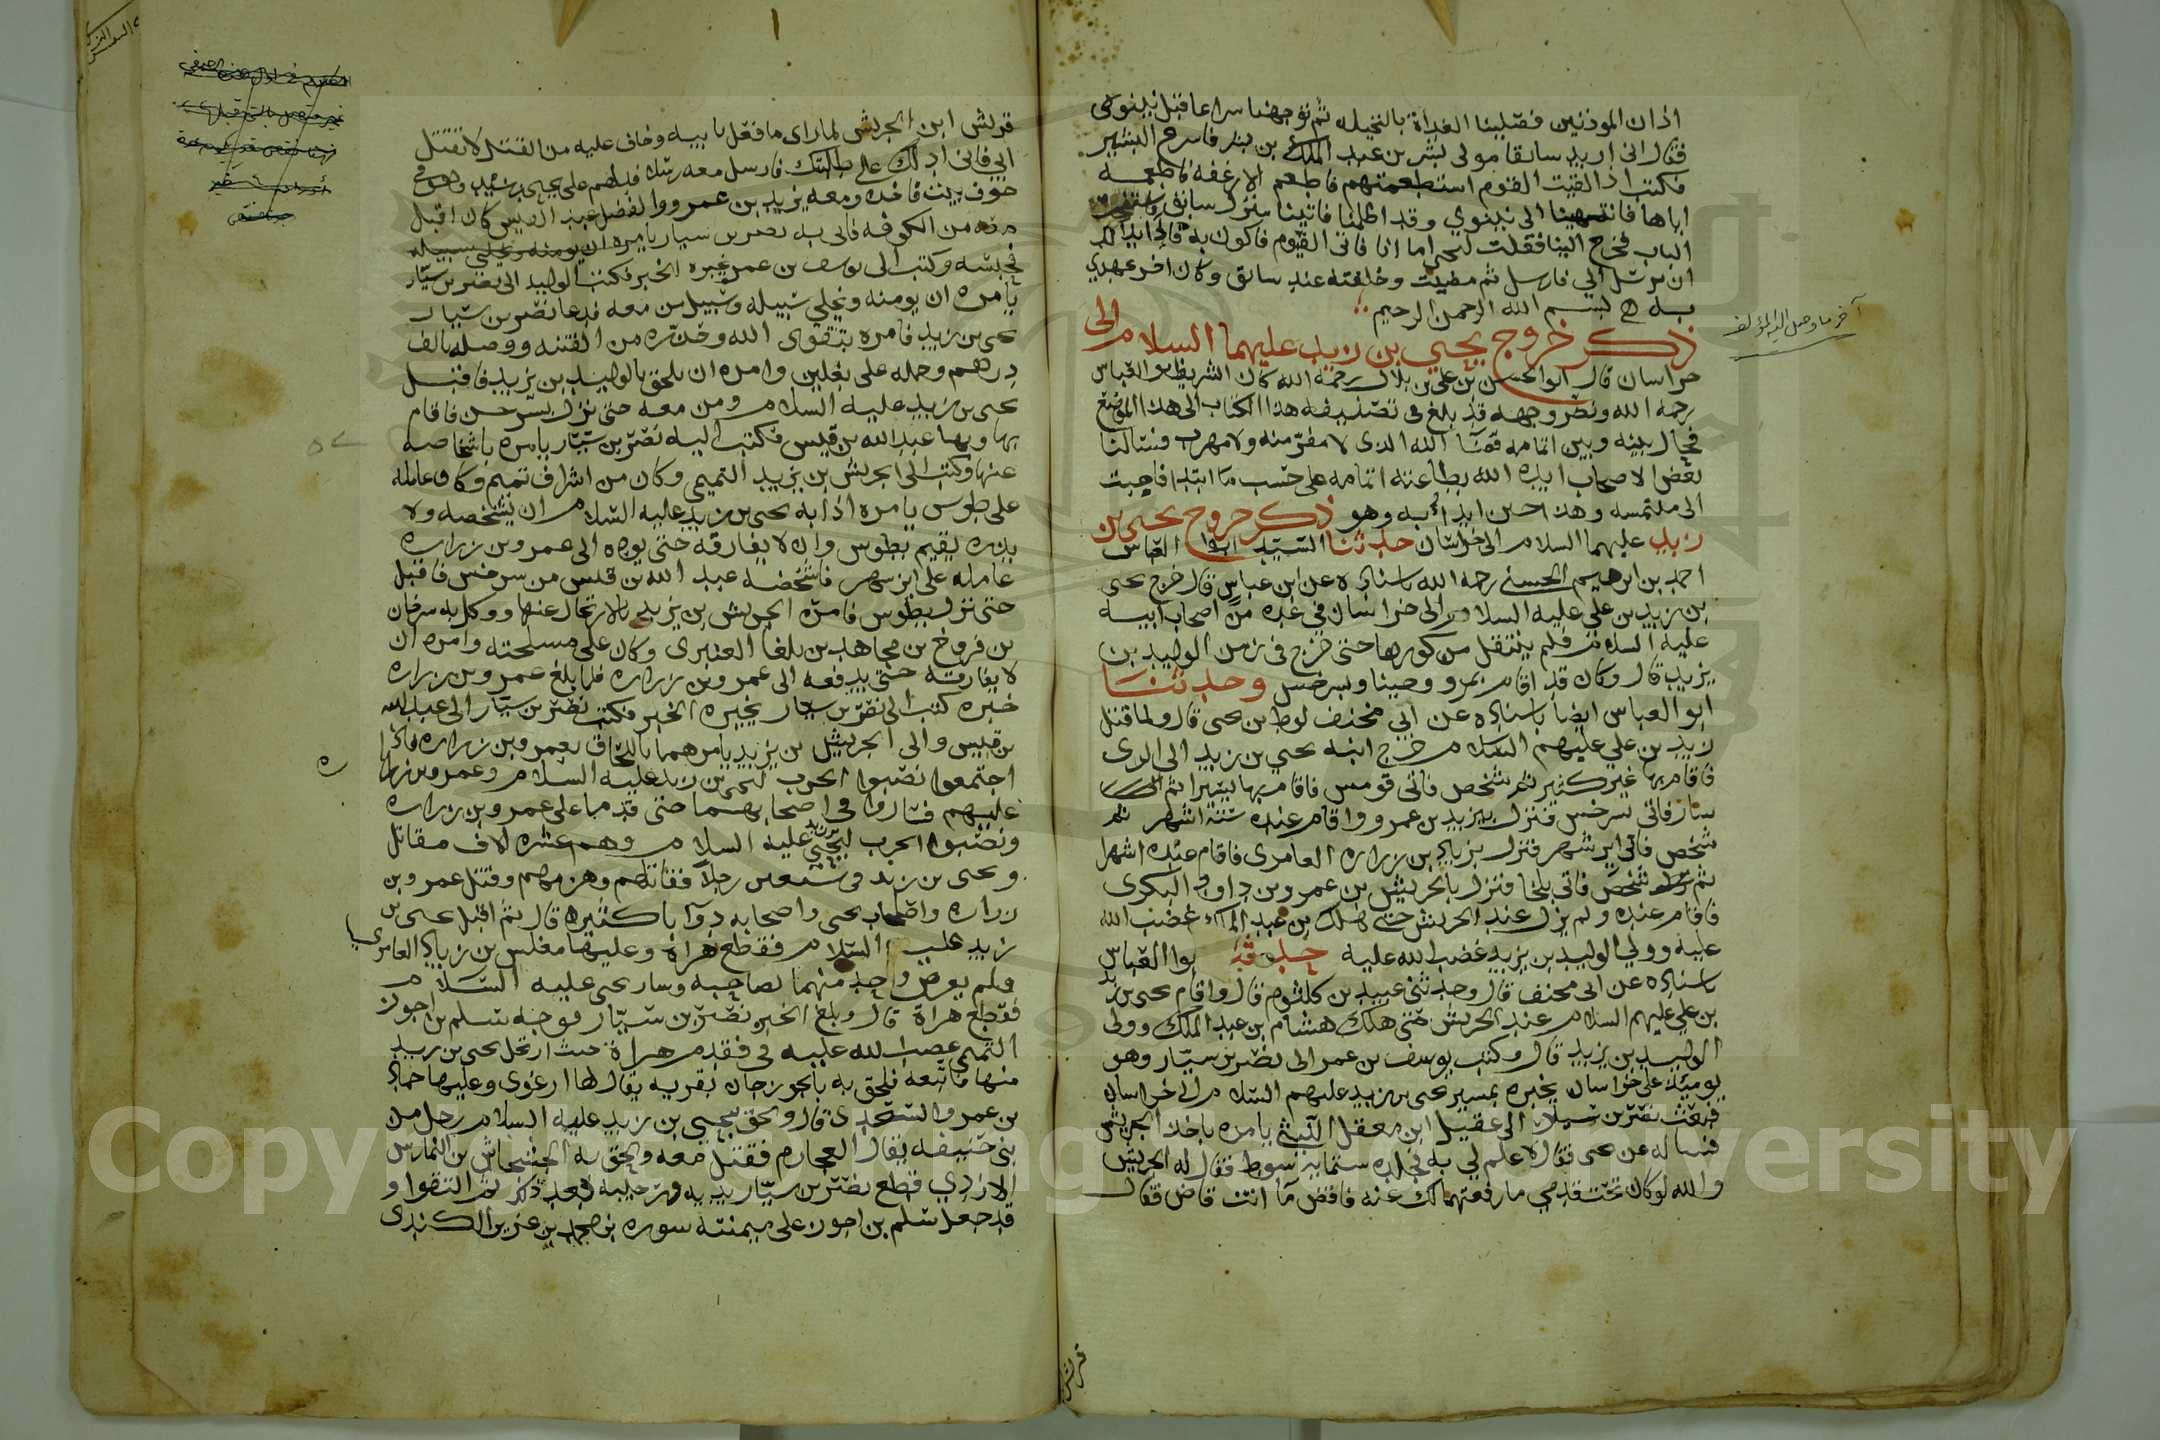 اذان الموذنين فصلينا الغداة بالنخيله ثم توجهنا سراعا قبل نينوى
فقال انى اريد سابقا مولى بشر بن عبد الملك بن بشر فاسرع السير
فكنت اذا لقيت القوم استطعمتهم فاطعم الارغفة فاطعمه
اياها فانتهينا الى نينوي وقد اظلمنا فاتينا منزل سابق
الباب فخرج الينا فقلت ليحيى اما انا فاتى الفيوم فاكون به فاذا بدا لك
ان ترسل الي فارسل ثم مضيت وخلفته عند سابق وكان اخر عهدي
به بسم الله الرحمن الرحيم
ذكر خروج يحيي بن زيد عليهما السلام الى
آخر ما وصل اليه المؤلف
خراسان قال ابو الحسن بن علي بن بلال رحمه الله كان الشريف ابو العباس
رحمه الله ونضر وجهه قد بلغ في تصنيفه هذا الكتاب الى هذا الموضع
فحال بينه وبين اتمامه قضآ الله الذى لا مفر منه ولا مهرب فسالنا
بعض الاصحاب ايده الله بطاعته اتمامه على حسب ما ابتدا فاجبت
الى ملتمسه وهذا حين ابدأ به وهو ذكر خروج يحيى بن
زيد عليهما السلام الى خراسان حدثنا السيد ابو العباس
احمد بن ابرهيم الحسنى رحمه الله باسناده عن ابن عباس قال خرج يحيى
بن زيد بن علي عليه السلام الى خراسان في عدة من اصحاب ابيه
عليه السلام فلم ينتقل من كورها حتى خرج فى زمن الوليد بن
يزيد قال وكان قد اقام بمرو وحينا وسرخس وحدثنا
ابو العباس ايضا باسناده عن ابي مخنف لوط بن يحيى قال ولما قتل
زيد بن علي عليهم السلام خرج ابنه يحيى بن زيد الى الرى
فاقام بها غير كثير ثم شخص فاتى قومس فاقام بها يسيرا ثم
سار فاتى سرخس فنزل بيزيد بن عمرو واقام عنده ستة اشهر ثم
شخص فاتى ابر شهر فنزل بزياد بن زراره العامرى فاقام عنده اشهرا
ثم شخص فاتى بلخا فنزل بالحريش بن عمرو بن داود البكرى
فاقام عنده ولم يزل عند الحريش حتى هلك بن عبد الملك غضب الله
عليه وولي الوليد بن يزيد غضب الله عليه ابو العباس
باسناده عن ابى مخنف قال وحدثنى عبيد بن كلثوم قال واقام يحيى بن زيد
بن علي عليهم السلام عند الحريش حتى هلك هشام بن عبد الملك وولى
الوليد بن يزيد قال وكتب يوسف بن عمر الى نصر بن سيار وهو
يومئذ على خراسان يخبره بمسير يحيى بن زيد عليهم السلام الى خراسان
فبعث نصر بن سيار الى عقيل ابن معقل الليثى يامره باخذ الحريش
فسأله عن يحيى فقال لا علم لي به فجلده ستمايه سوط فقال له الحريش
والله لو كان تحت قدمي ما رفعتهما لك عنه فاقض مآ انت قاض فقال
قريش
قريش ابن الحريش لما راى ما فعل بابيه وخاف عليه من القتل لا تقتل
ابي فانى ادلك على طلبتك فارسل معه فدلهم على يحيى بن زيد وهو في
جوف بيت فاخذه ومعه يزيد بن عمرو والفضل عبد القيس كان اقبل
معه من الكوفه فاتى به نصر بن سيار يامره ان يومنه ويخلى سبيله
فحبسه وكتب الى يوسف بن عمر يخبره الخبر فكتب الوليد الى نصر بن سيار
يامره ان يومنه ويخلي سبيله وسبيل من معه فدعا نصر بن سيار
يحيى بن زيد فامره بتقوى الله وحذره من الفتنه ووصله بالف
درهم وحمله على بغلين وامره ان يلحق بالوليد بن يزيد فاقبل
يحيى بن زيد عليه السلام ومن معه حتى نزل بسرخس فاقام
بها وبها عبد الله بن قيس فكتب اليه نصر بن سيار يامره باشخاصه
عنها وكتب الى الحريش بن يزيد التميمى وكان من اشراف تميم وكان عامله
على طوس يامره اذا به يحيى بن زيد عليه السلام ان يشخصه ولا
يدره يقيم بطوس وان لا يفارقه حتى يوده الى عمرو بن زراره
عامله على ابر شهر فاشخصه عبد الله بن قيس من سرخس فاقبل
حتى نزل بطوس فامره الحريش بن يزيد بالارتحال عنها ووكل به سرحان
بن فروخ بن مجاهد بن بلعا العنبرى وكان على مسلحته وامره ان
لا يفارقه حتى يدفعه الى عمرو بن زراره فلما بلغ عمرو بن زراره
خبره كتب الى نصر بن سيار يخبره الخبر فكتب نصر بن سيار الى عبد الله
بن قيس والى الحريش بن يزيد يامرهما باللحاق بعمرو بن زراره فاذا
اجتمعوا نصبوا الحرب ليحيى بن زيد عليه السلام وعمرو بن زراره
عليهم فساروا فى اصحابهما حتى قدما على عمرو بن زراره
ونصبوا الحرب ليحيى بن زيد عليه السلام وهم عشره الاف مقاتل
ويحيى بن زيد فى سبعين رجلا فقاتلهم وهزمهم وقتل عمرو بن
زراره واصاب يحيى واصحابه دوآبا كثيره قال ثم اقبل يحيى بن
زيد عليه السلام فقطع هراة وعليها مغلس بن زياد العامرى
فلم يعرض واحد منهما لصاحبه وسار يحيى عليه السلام
فقطع هراة قال وبلغ الخبر نصر بن سيار فوجه سلم بن احوز
التميمى غضب الله عليه في فقدم هراة حيث ارتحل يحيى بن زيد
منها فاتبعه فلحق به بالجوزجان بقريه يقال لها ارغوى وعليها حماد
بن عمرو السغدي قال ولحق بيحيى بن زيد عليه السلام رجل من
بنى حنيفه يقال العجارم فقتل معه ولحق به الخشخاش
الازدي فقطع نصر بن سيار يديه ورجليه بعد ذلك ثم التقوا و
قد جعل سلم بن احوز على ميمنته سوره بن محمد بن عزيز الكندى
Copyright © King Saud University